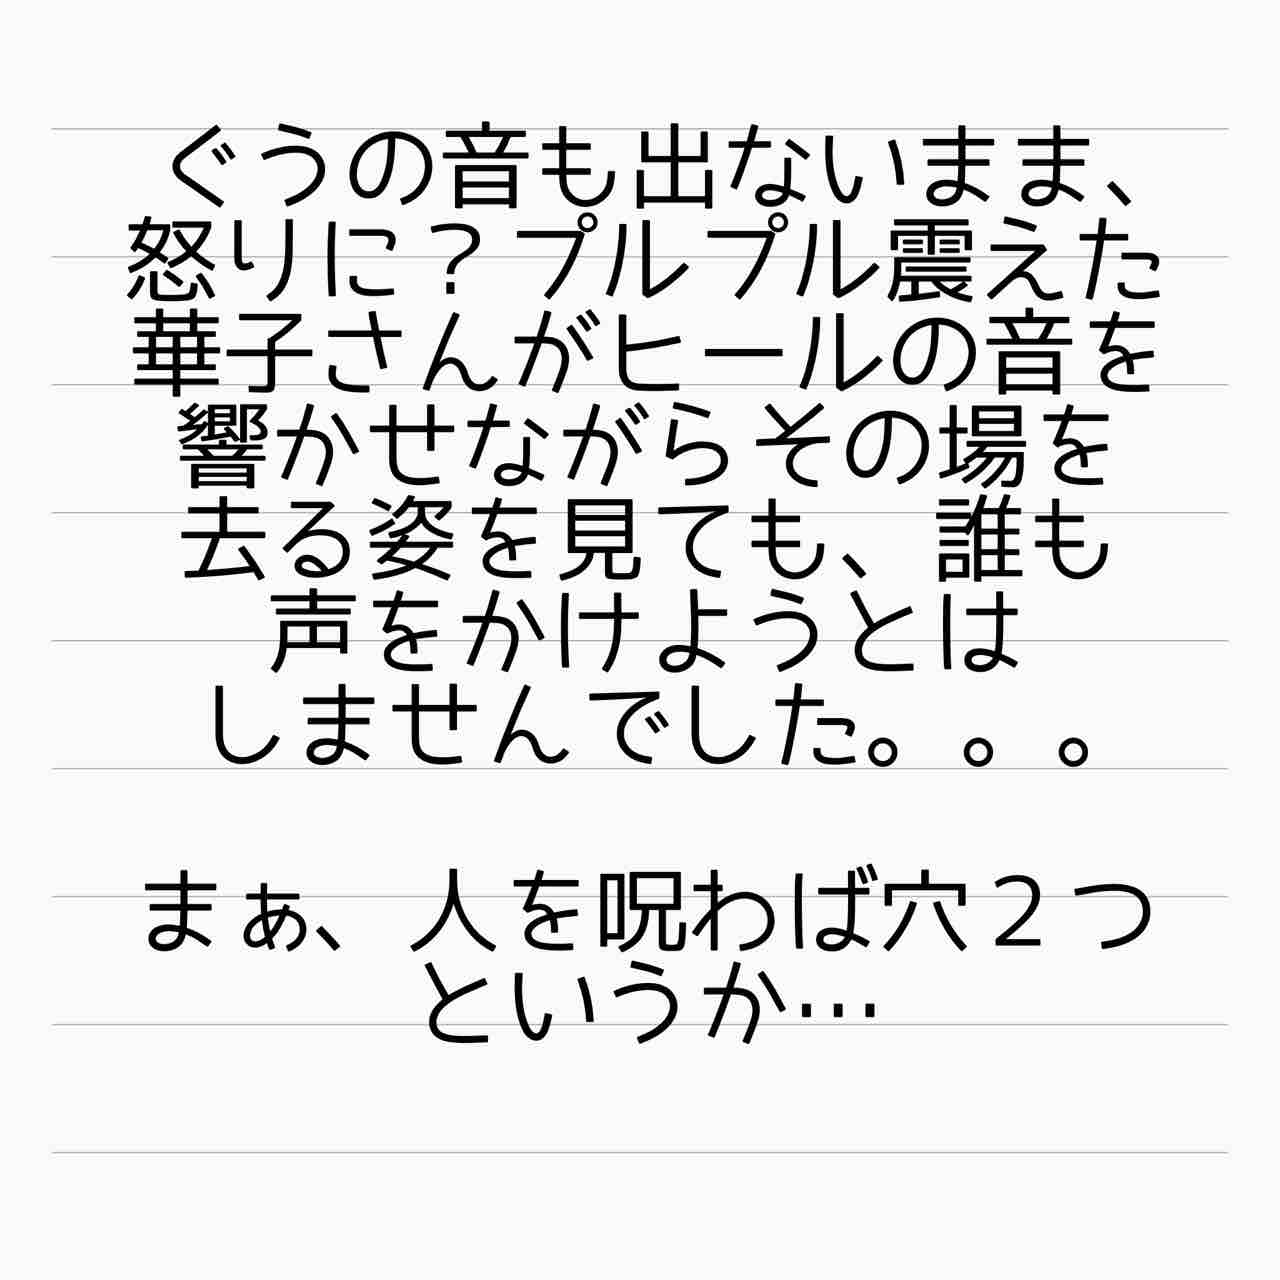 ぐうの音も出ないまま、
怒りに？プルプル震えた
華子さんがヒールの音を
響かせながらその場を
去る姿を見ても、誰も
声をかけようとは
しませんでした。。。
まぁ、人を呪わば穴２つ
というか…